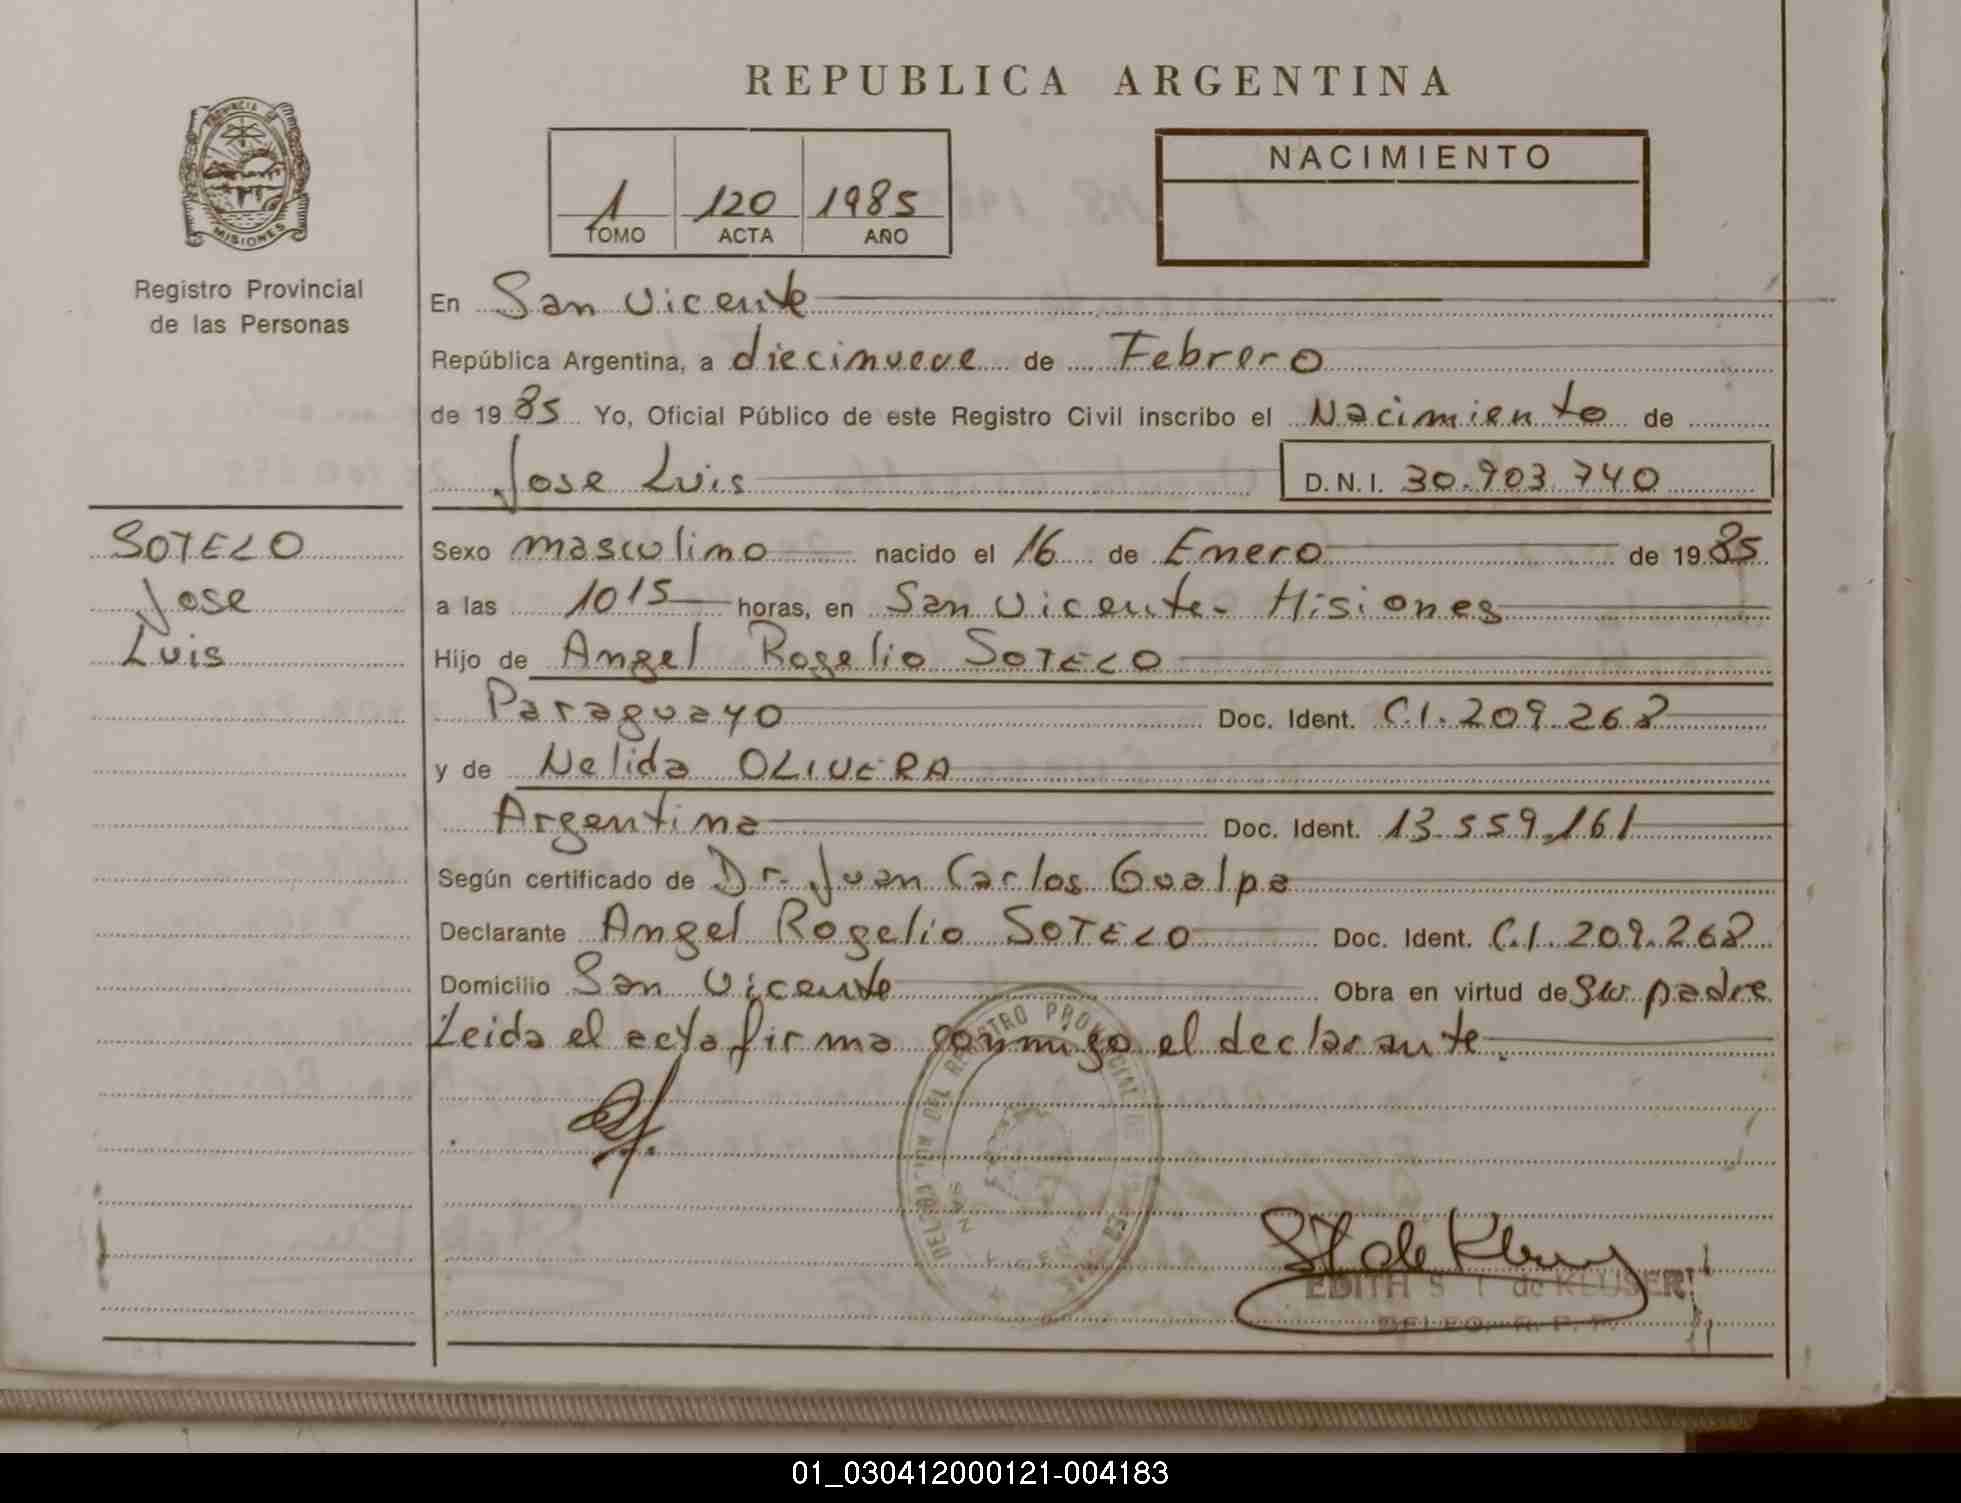 REPUBLICA ARGENTINA
PROVINCIA DE
MISIONES
Registro Provincial
de las Personas
1 120 1985
TOMO ACTA AÑO
NACIMIENTO
En San Vicente
República Argentina, a diecinueve de Febrero
de 1985 Yo, Oficial Público de este Registro Civil inscribo el Nacimiento de
Jose Luis D.N.I. 30.903.740
SOTELO
Jose
Luis
Sexo masculino nacido el 16 de Enero de 1985
a las 1015 horas, en San Vicente - Misiones
Hijo de Angel Rogelio SOTELO
Paraguayo Doc. Ident. C.I. 209.268
y de Nelida OLIVERA
Argentina Doc. Ident. 13.559.161
Según certificado de Dr. Juan Carlos Gualpa
Declarante Angel Rogelio SOTELO Doc. Ident. C.I. 209.268
Domicilio San Vicente Obra en virtud de su padre
Leida el acta firma conmigo el declarante.
REGISTRO PROVINCIAL DE
SAN VICENTE
EDITH S T de KLUSER
01_030412000121-004183